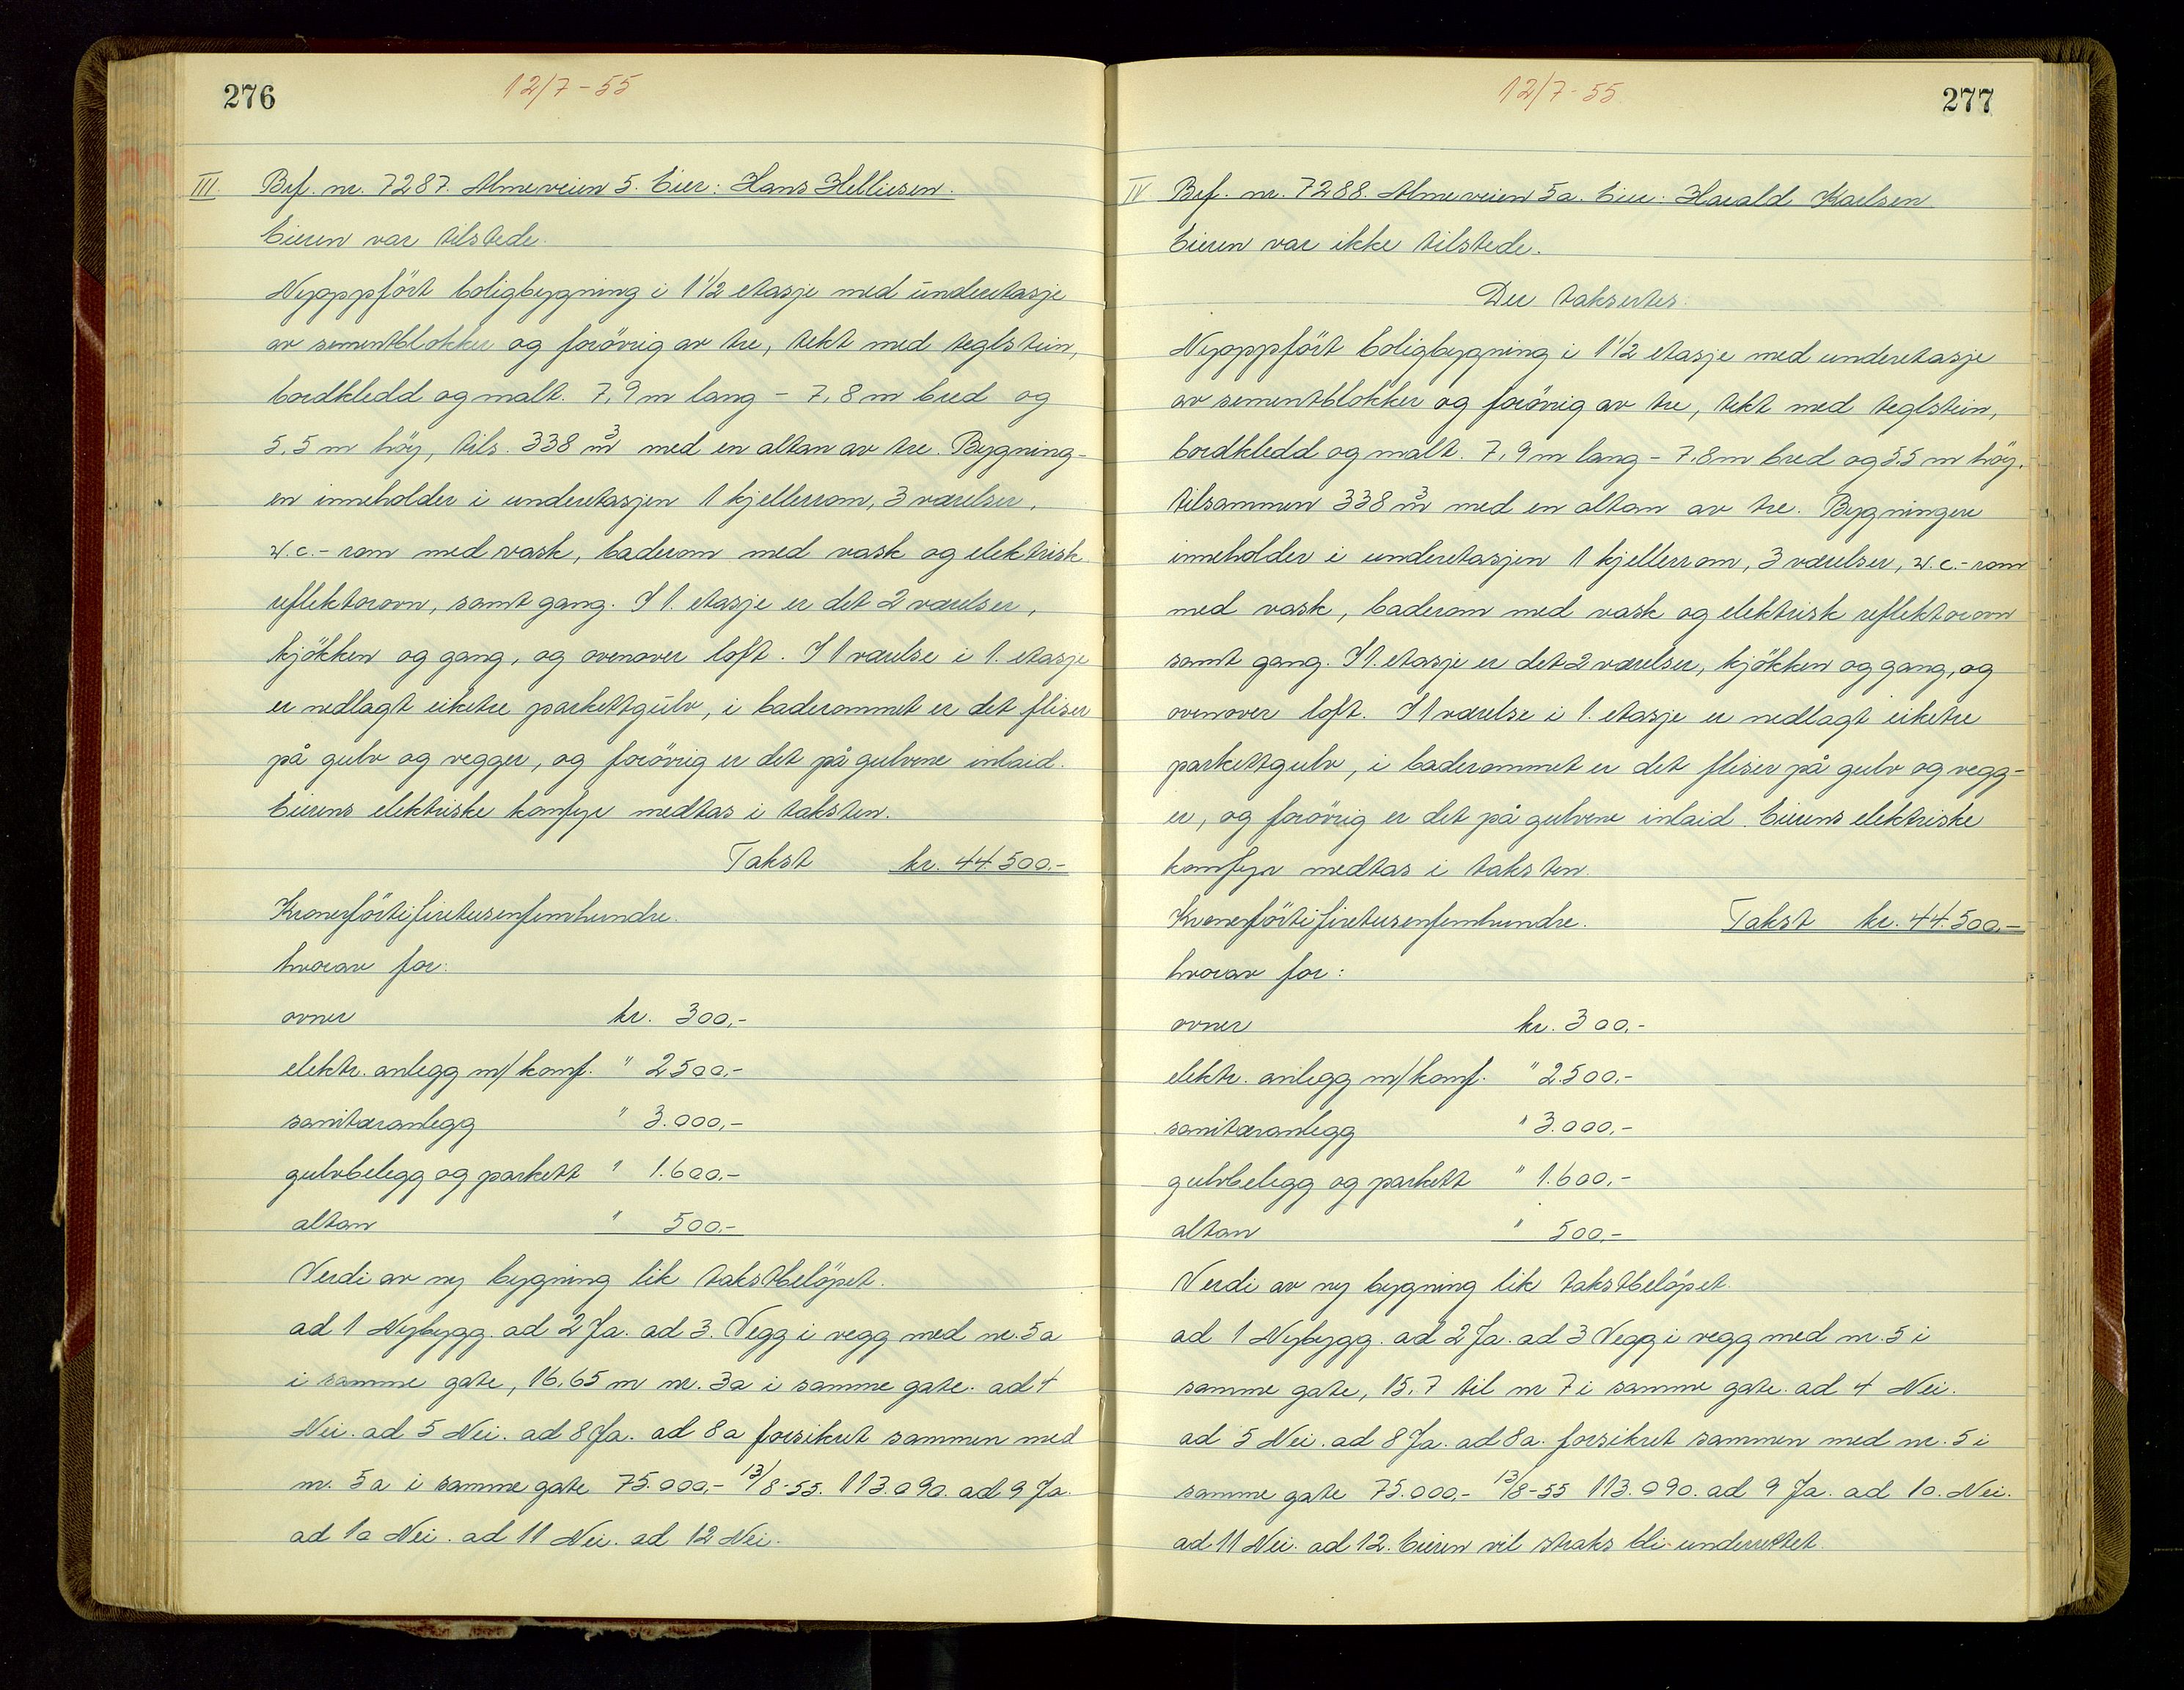 276
12/7-55
III Brf. nr. 7287. Almeveien 5. Eier: Hans Helliesen.
Eieren var tilstede.
Nyoppført boligbygning i 1 1/2 etasje med underetasje
av sementblokker og forøvrig av tre, tekt med teglstein,
bordkledd og malt. 7,9 m lang - 7,8 m bred og
5,5 m høy, tils. 338 m³ med en altan av tre. Bygning-
en inneholder i underetasjen 1 kjellerrom, 3 værelser,
w.c.-rom med vask, baderom med vask og elektrisk
reflektorovn, samt gang. I 1. etasje er det 2 værelser,
kjøkken og gang, og ovenover loft. I 1 værelse i 1. etasje
er nedlagt eiketre parkettgulv, i baderommet er det fliser
på gulv og vegger, og forøvrig er det på gulvene inlaid.
Eierens elektriske komfyr medtas i taksten.
Takst kr. 44.500.-
Kronerførtifiretusenfemhundre.
hvorav for:
ovner kr. 300,-
elektr. anlegg m/komf. " 2500,-
sanitæranlegg " 3.000,-
gulvbelegg og parkett " 1.600,-
altan " 500,-
Verdi av ny bygning lik takstbeløpet.
ad 1 Nybygg. ad 2 Ja. ad 3. Vegg i vegg med nr. 5a
i samme gate, 16,65 m nr. 3a i samme gate. ad 4
Nei. ad 5 Nei. ad 8 Ja. ad 8a forsikret sammen med
nr. 5a i samme gate 75.000,- 13/8-55. 113.090. ad 9 Ja.
ad 10 Nei. ad 11 Nei. ad 12 Nei.
12/7-55
277
IV Brf. nr. 7288. Almeveien 5a. Eier: Harald Karlsen
Eieren var ikke tilstede.
Der takseres:
Nyoppført boligbygning i 1 1/2 etasje med underetasje
av sementblokker og forøvrig av tre, tekt med teglstein,
bordkledd og malt. 7,9 m lang - 7,8 m bred og 5.5 m høy.
tilsammen 338 m³ med en altan av tre. Bygningen
inneholder i underetasjen 1 kjellerrom, 3 værelser, w.c.-rom
med vask, baderom med vask og elektrisk reflektorovn
samt gang. I 1. etasje er det 2 værelser, kjøkken og gang, og
ovenover loft. I 1 værelse i 1. etasje er nedlagt eiketre
parkettgulv, i baderommet er det fliser på gulv og vegg-
er, og forøvrig er det på gulvene inlaid. Eierens elektriske
komfyr medtas i taksten.
Kronerførtifiretusenfemhundre. Takst kr. 44.500,-
hvorav for:
ovner kr. 300,-
elektr. anlegg m/komf. " 2.500,-
sanitæranlegg " 3.000,-
gulvbelegg og parkett " 1.600,-
altan " 500,-
Verdi av ny bygning lik takstbeløpet.
ad 1 Nybygg. ad 2 Ja. ad 3 Vegg i vegg med nr. 5 i
samme gate, 15,7 til nr 7 i samme gate. ad 4 Nei.
ad 5 Nei. ad 8 Ja. ad 8a. forsikret sammen med nr. 5 i
samme gate 75.000,- 13/8-55 113.090. ad 9 Ja. ad 10. Nei.
ad 11 Nei. ad 12. Eieren vil straks bli underrettet.